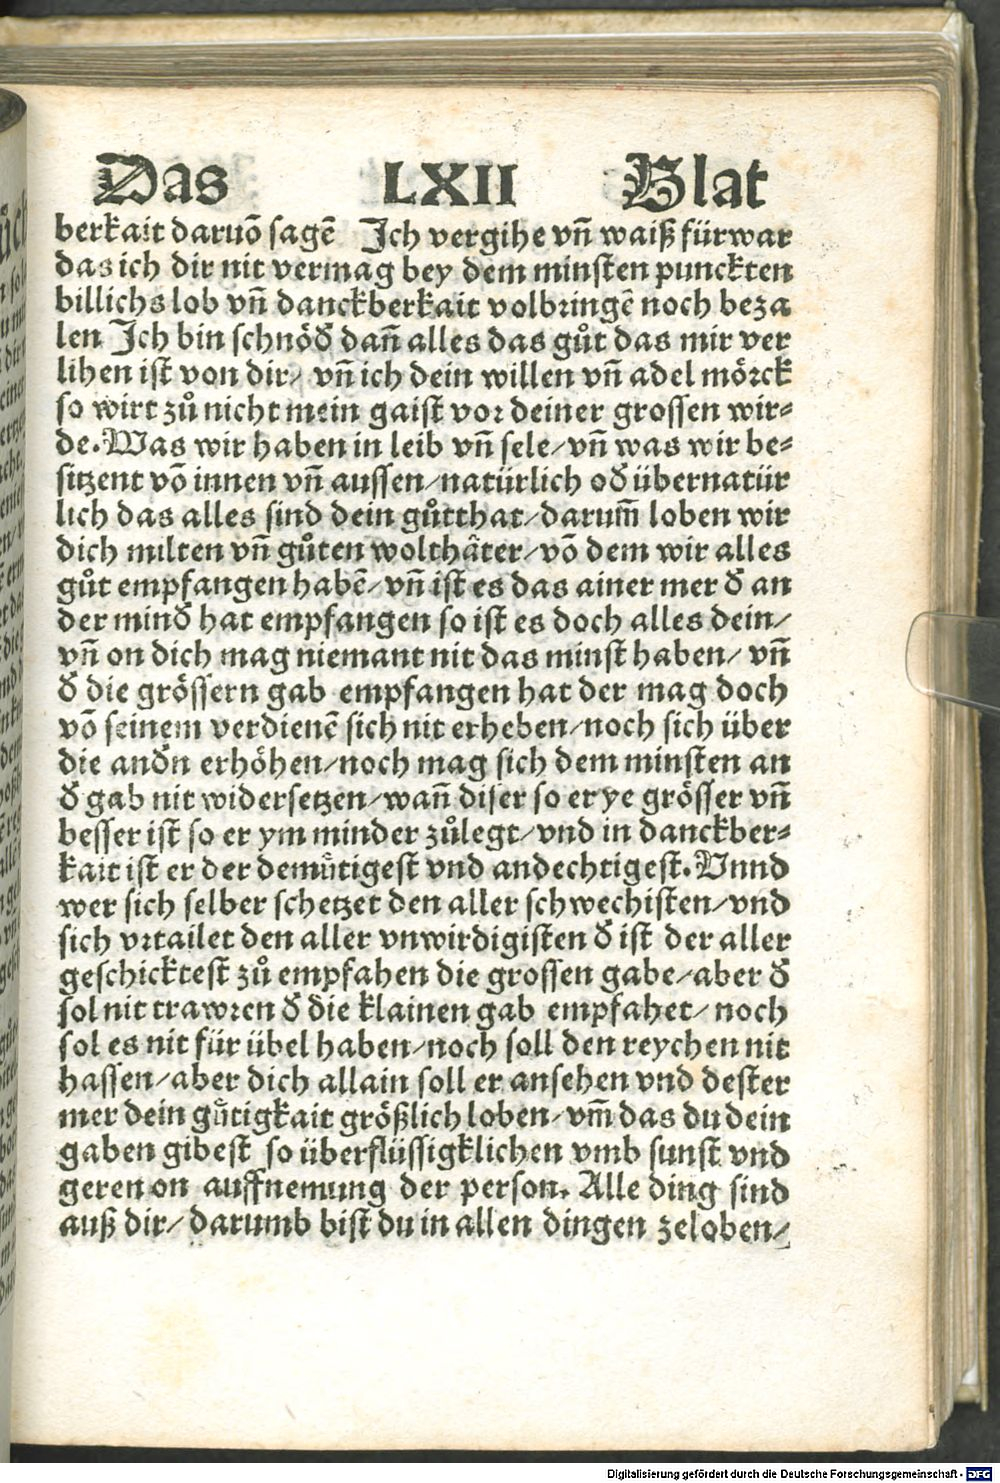 Das LXII Blat
berkait daruō sagē Ich vergihe vn̄ waiß fürwar
das ich dir nit vermag bey dem minsten punckten
billichs lob vn̄ danckberkait volbringē noch beza
len Ich bin schnöđ dan̄ alles das gůt das mir ver
lihen ist von dir/ vn̄ ich dein willen vn̄ adel mörck
so wirt zů nicht mein gaist vor deiner grossen wir⸗
de. Was wir haben in leib vn̄ sele/ vn̄ was wir be⸗
sitzent vō innen vn̄ aussen/ natürlich ođ übernatür
lich das alles sind dein gůtthat/ darum̄ loben wir
dich milten vn̄ gůten wolthäter/ vō dem wir alles
gůt empfangen habē/ vn̄ ist es das ainer mer đ an
der minđ hat empfangen so ist es doch alles dein/
vn̄ on dich mag niemant nit das minst haben/ vn̄
đ die grössern gab empfangen hat der mag doch
vō seinem verdienē sich nit erheben/ noch sich über
die anđn erhöhen/ noch mag sich dem minsten an
đ gab nit widersetzen/ wan̄ diser so er ye grösser vn̄
besser ist so er ym minder zůlegt/ vnd in danckber⸗
kait ist er der demütigest vnd andechtigest. Vnnd
wer sich selber schetzet den aller schwechisten/ vnd
sich vrtailet den aller vnwirdigisten đ ist der aller
geschicktest zů empfahen die grossen gabe/ aber đ
sol nit trawren đ die klainen gab empfahet/ noch
sol es nit für übel haben/ noch soll den reychen nit
hassen/ aber dich allain soll er ansehen vnd dester
mer dein gütigkait größlich loben/ vm̄ das du dein
gaben gibest so überflüssigklichen vmb sunst vnd
geren on auffnemung der person. Alle ding sind
auß dir/ darumb bist du in allen dingen zeloben/
Digitalisierung gefördert durch die Deutsche Forschungsgemeinschaft - DFG